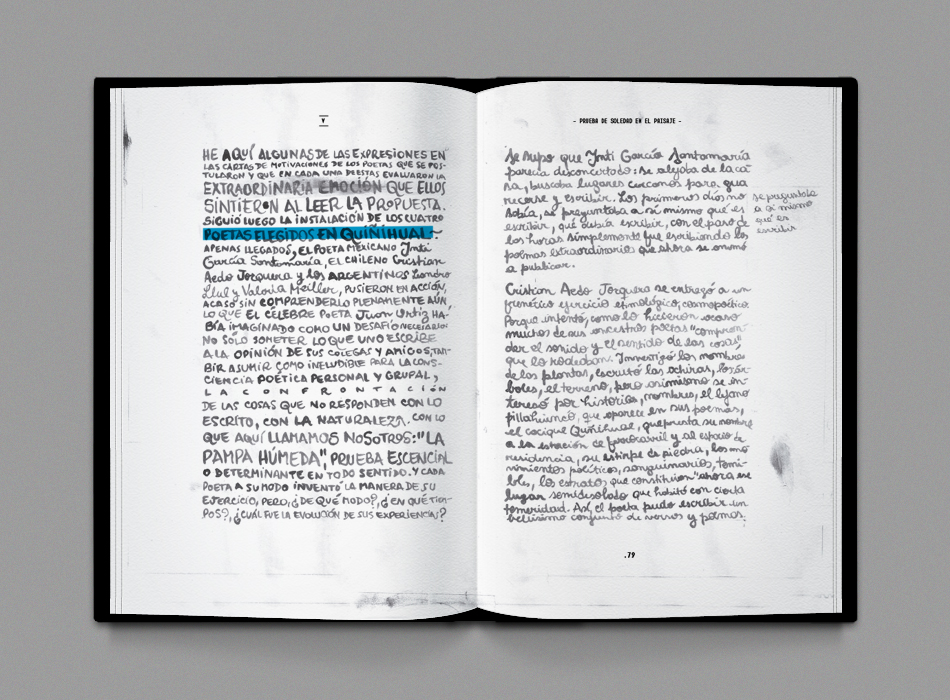 V
HE AQUÍ ALGUNAS DE LAS EXPRESIONES EN
LAS CARTAS DE MOTIVACIONES DE LOS POETAS QUE SE POS-
TULARON Y QUE EN CADA UNA DE ESTAS EVALUARON LA
EXTRAORDINARIA EMOCIÓN QUE ELLOS
SINTIERON AL LEER LA PROPUESTA.
SIGUIÓ LUEGO LA INSTALACIÓN DE LOS CUATRO
POETAS ELEGIDOS EN QUIÑIHUAL.
APENAS LLEGADOS, EL POETA MEXICANO Inti
García Santamaría, EL CHILENO Cristian
Aedo Jorquera y los ARGENTINOS Leandro
Llull y Valeria Meiller, PUSIERON EN ACCIÓN,
ACASO SIN COMPRENDERLO PLENAMENTE AÚN,
LO QUE EL CÉLEBRE POETA Juan Ortiz HA-
BÍA IMAGINADO COMO UN DESAFÍO NECESARIO:
NO SOLO SOMETER LO QUE UNO ESCRIBE
A LA OPINIÓN DE SUS COLEGAS Y AMIGOS, TAM-
BIR ASUMIR COMO INELUDIBLE PARA LA CONS-
CIENCIA POÉTICA PERSONAL Y GRUPAL,
LA CONFRONTACIÓN
DE LAS COSAS QUE NO RESPONDEN CON LO
ESCRITO, CON LA NATURALEZA. CON LO
QUE AQUÍ LLAMAMOS NOSOTROS: "LA
PAMPA HÚMEDA", PRUEBA ESCENCIAL
O DETERMINANTE EN TODO SENTIDO. Y CADA
POETA A SU MODO INVENTÓ LA MANERA DE SU
EJERCICIO, PERO, ¿DE QUÉ MODO?, ¿EN QUÉ TIEM-
POS?, ¿CUÁL FUE LA EVOLUCIÓN DE SUS EXPERIENCIAS?
- PRUEBA DE SOLEDAD EN EL PAISAJE -
Se supo que Inti García Santamaría
parecía desconcertado: se alejaba de la ca
sa, buscaba lugares cercanos para gua
recerse y escribir. Los primeros días no
sabía, se preguntaba a sí mismo qué es
escribir, qué debía escribir, con el paso de
las horas simplemente fue escribiendo los
poemas extraordinarios que ahora se animó
a publicar.
se preguntaba
a sí mismo
qué es
escribir
Cristian Aedo Jorquera se entregó a un
frenético ejercicio etimológico, cosmopoético.
Porque intentó, como lo hicieron acaso
muchos de sus ancestros poetas "compren-
der el sonido y el sentido de las cosas",
que lo rodeaban. Investigó los nombres
de las plantas, escrutó las achiras, los ár-
boles, el terreno, pero asimismo se in-
teresó por historias, nombres, el lejano
pillahuincó, que aparece en sus poemas,
el cacique Quiñihual, que presta su nombre
a la estación de ferrocarril y al espacio de
residencia, su estirpe de piedra, los mo
vimientos políticos, sanguinarios, temi-
bles, los estratos que constituían "ahora ese
lugar semidesolado que habitó con cierta
temeridad. Así, el poeta pudo escribir un
bellísimo conjunto de versos y poemas.
.79